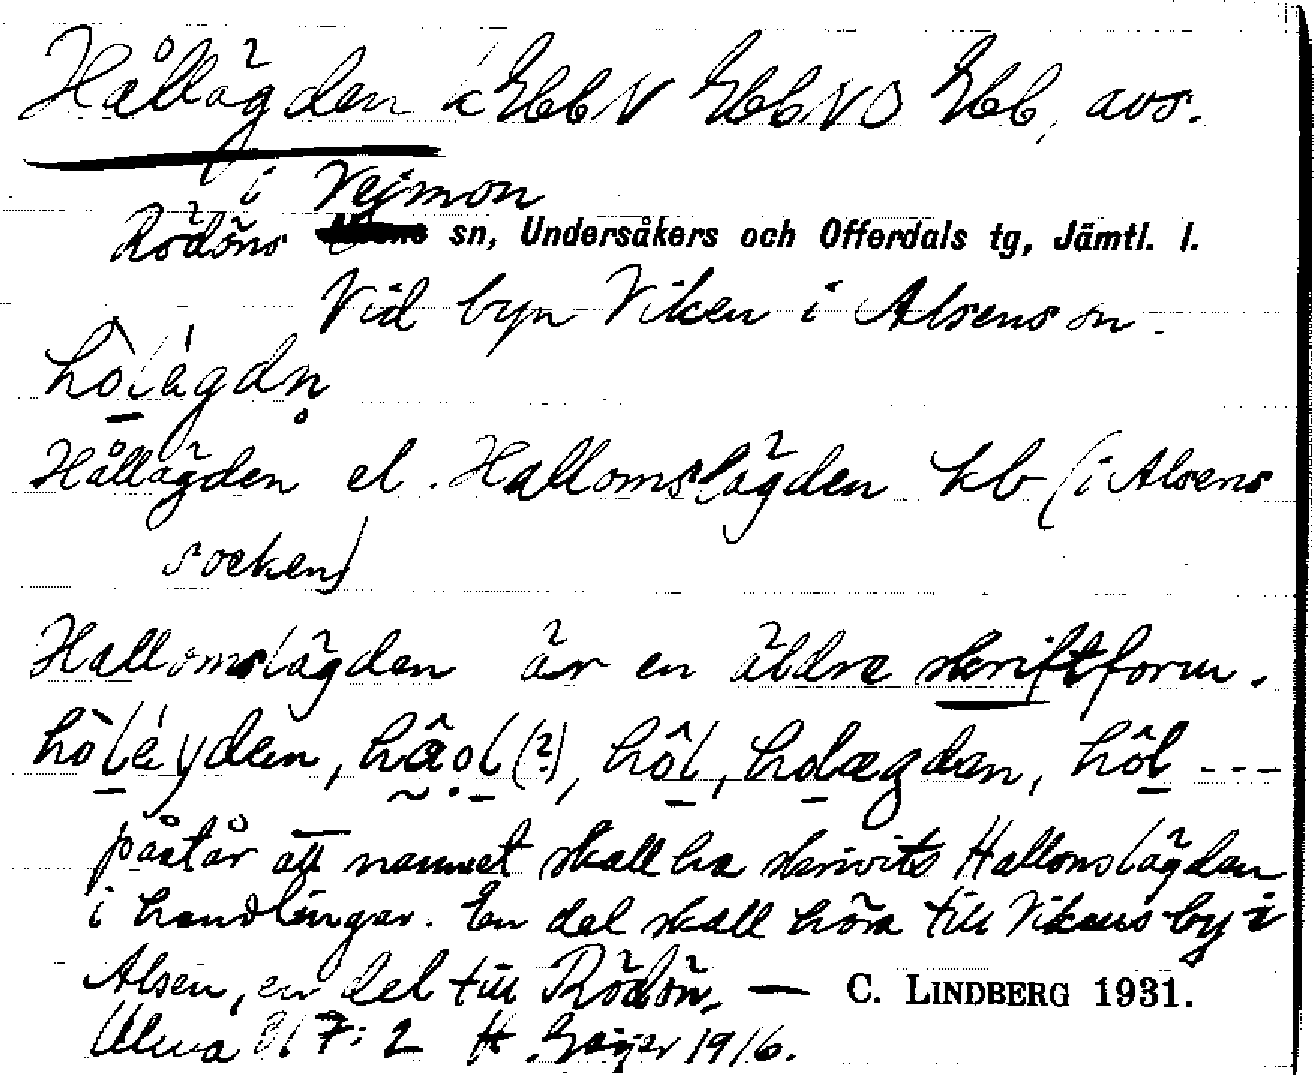 Hållägden i Ebb V Ebb V O Ebb, avs.
i Vejmon
Rödöns sn, Undersåkers och Offerdals tg, Jämtl. l.
Vid byn Viken i Alsens sn.
hòlágdn̥
Hållägden el. Hallomslägden kb (i Alsens
socken)
Hallomslägden är en äldre skriftform.
hòláyden, hâol(?), hôl, holægden, hôl ---
påstår att namnet skall ha skrivits Hallonslägden
i handlingar. En del skall höra till Vikens by i
Alsen, en del till Rödön. — C. LINDBERG 1931.
Ulma 317:2 H. Geijer 1916.